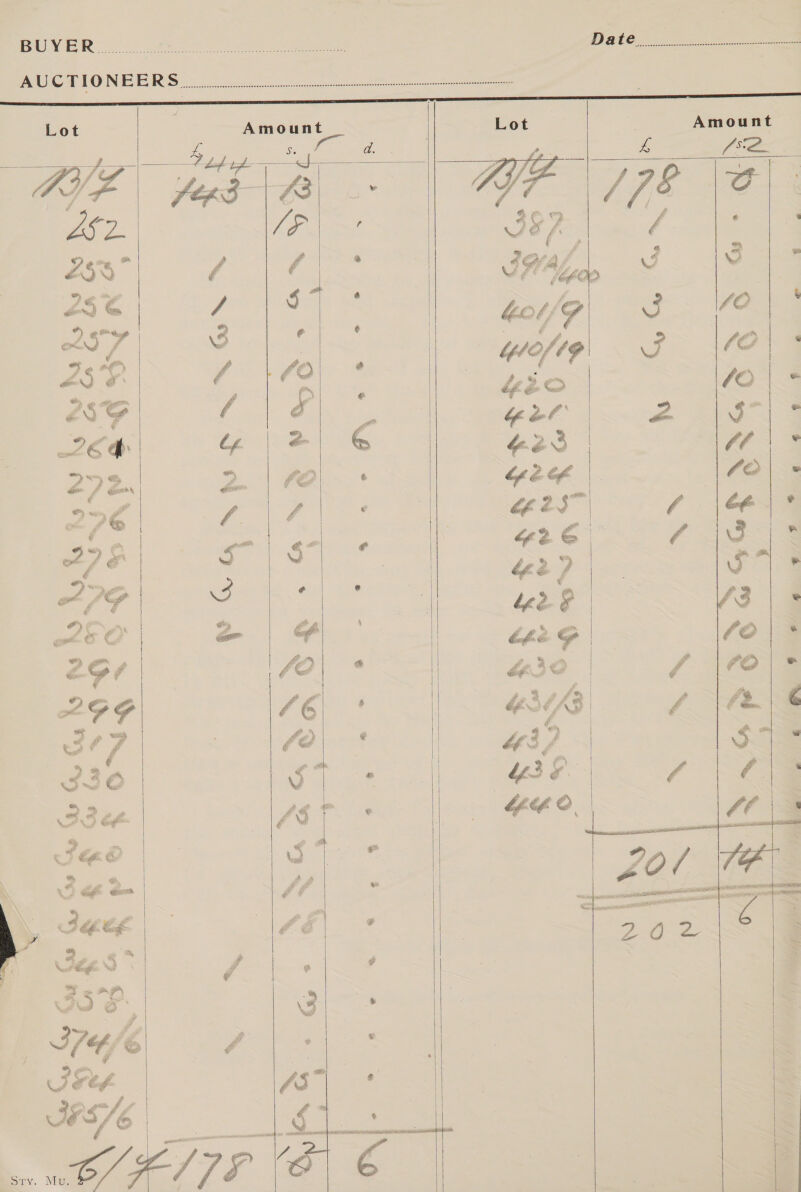 BUYER
Date
AUCTIONEERS
Lot Amount
£ s. d.
B/F 143 13 "
252 18 "
255 1 1 "
256 1 5 "
257 3 " "
258 1 10 "
259 1 8 "
264 4 2 6
272 2 10 "
276 1 1 "
278 5 5 "
279 3 " "
280 2 4 "
291 10 "
299 16 "
317 10 "
330 5 "
334 15 "
340 5 "
342 11 "
344 18 "
345 1 " "
358 3 "
374/6 1 " "
384 15 "
385/6 5 "
C/F 178 6
Sty. Mu.
Lot Amount
£ s.
B/F 178
387 1 " "
391A/400 3 3 "
401/9 3 10 "
410/19 3 10 "
420 10 "
421 2 5 "
423 11 "
424 10 "
425 1 4 "
426 1 3 "
427 5 "
428 13 "
429 10 "
430 1 10 "
431/3 1 12 6
437 5 "
438 1 1 "
440 11 "
201 14
202 6